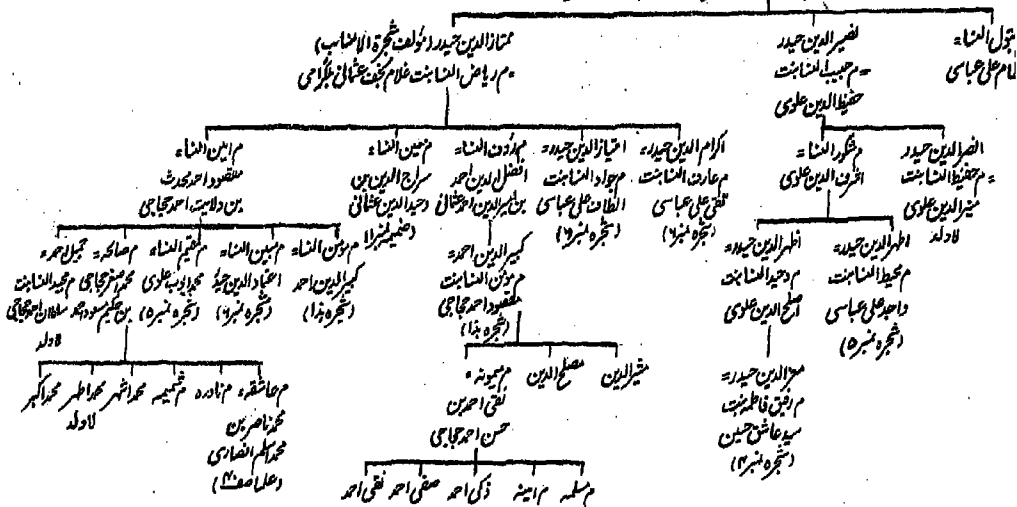 بتول النساء =
نظام علی عباسی
نصیر الدین حیدر
= م حبیب النسا بنت
حفیظ الدین علوی
ممتاز الدین حیدر (مؤلف شجرۃ الانساب)
= م ریاض النسا بنت غلام نجف عثمانی بلگرامی
النصر الدین حیدر
= م حفیظ النسا بنت
منیر الدین علوی
لا ولد
م شکور النساء =
اشرف الدین علوی
اکرام الدین حیدر =
م عارف النسا بنت
تقی علی عباسی
(شجرہ نمبر ۶)
امتیاز الدین حیدر =
م جواد النسا بنت
الطاف علی عباسی
(شجرہ نمبر ۶)
م رؤف النساء =
افضل الدین احمد
بن امیر الدین احمد عثمانی
م معین النساء =
سراج الدین بن
وحید الدین عثمانی
(ضمیمہ نمبر ۱)
م امین النساء =
مقصود احمد محدث
بن ولایت احمد حجاجی
اظہر الدین حیدر =
م محیط النسا بنت
واجد علی عباسی
(شجرہ نمبر ۵)
اظہر الدین حیدر =
م وحید النسا بنت
اصلح الدین علوی
معز الدین حیدر =
م رفیق فاطمہ بنت
سید عاشق حسین
(شجرہ نمبر ۴)
کبیر الدین احمد =
م موکن النسا بنت
مقصود احمد حجاجی
(شجرہ ہذا)
م موکن النساء =
کبیر الدین احمد
(شجرہ ہذا)
م مبین النساء =
اعتماد الدین حیدر
(شجرہ نمبر ۶)
م مقیم النساء =
محمد ایوب علوی
(شجرہ نمبر ۵)
م صالحہ =
محمد اصغر حجاجی
بن حکیم مسعود احمد
جمیل احمد =
م مجید النسا بنت
سلطان احمد حجاجی
لا ولد
مشیر الدین
مصلح الدین
م میمونہ =
نقی احمد بن
حسن احمد حجاجی
م عاشقہ =
محمد ناصر بن
محمد اسلم انصاری
م نادرہ
م شمیمہ
محمد اشہر
محمد اطہر
لا ولد
محمد اکبر
م سلمہ
م امینہ
ذکی احمد
صفی احمد
نقی احمد